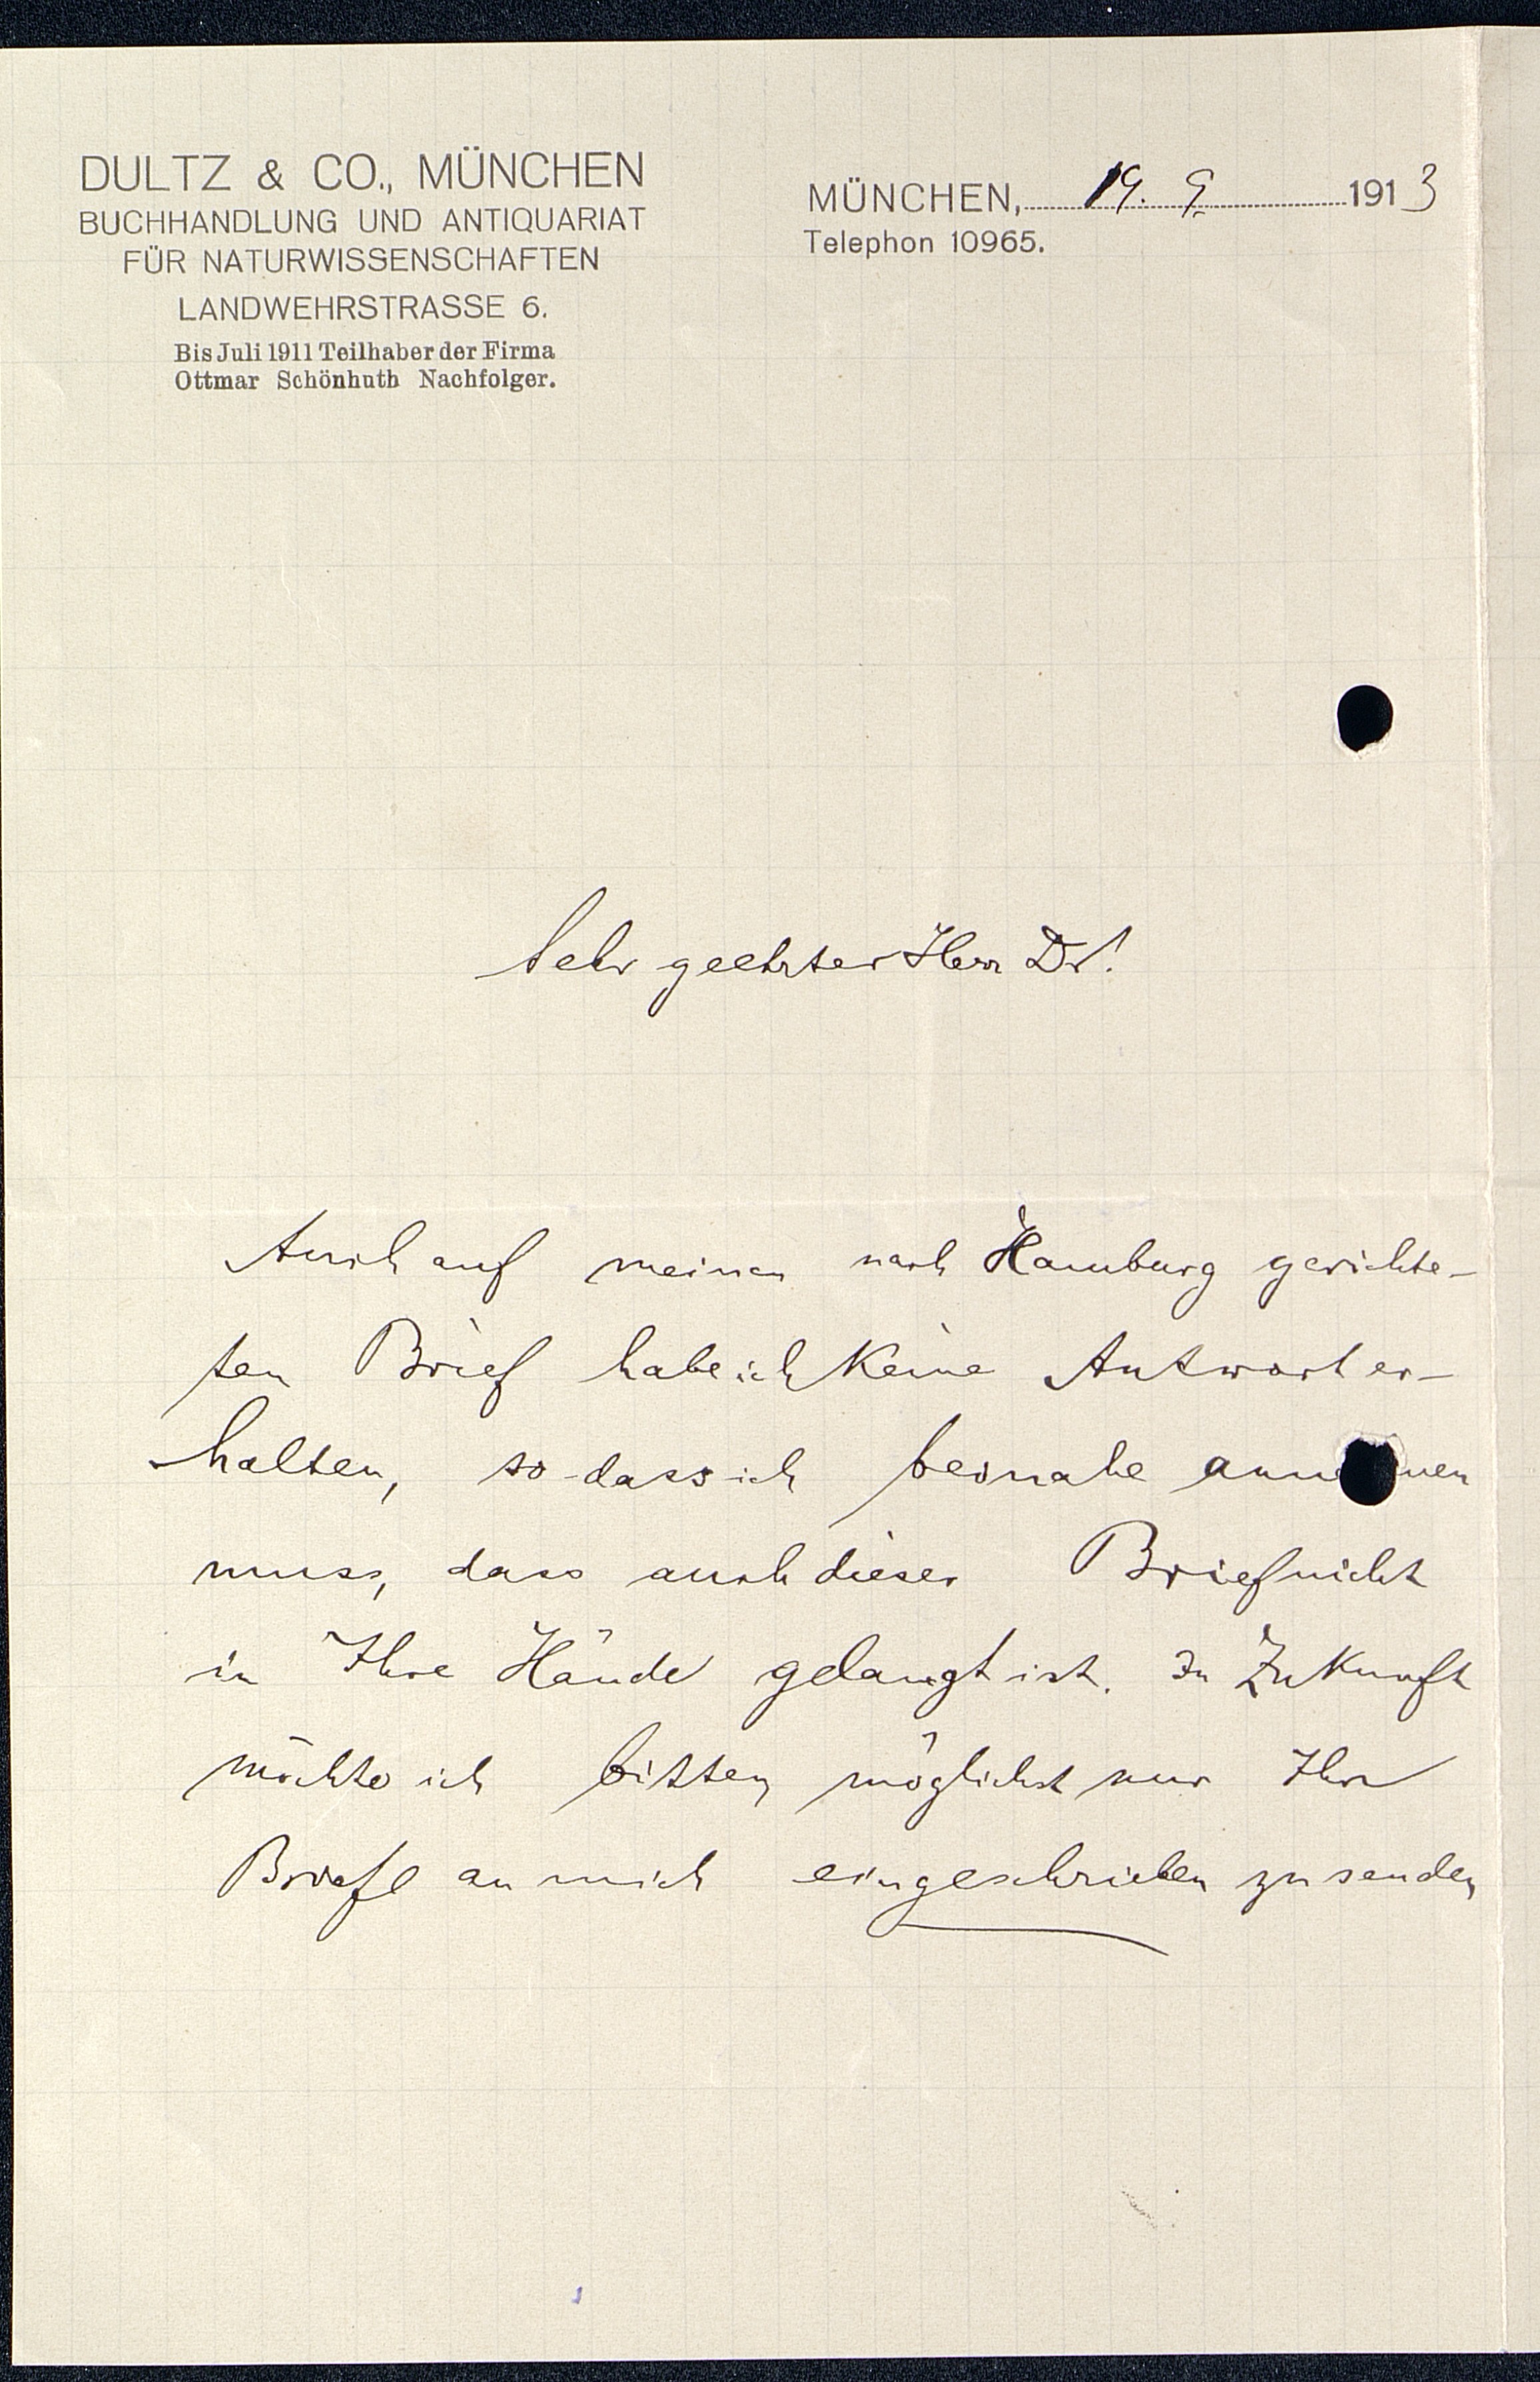 DULTZ & CO., MÜNCHEN
BUCHHANDLUNG UND ANTIQUARIAT
FÜR NATURWISSENSCHAFTEN
LANDWEHRSTRASSE 6.
Bis Juli 1911 Teilhaber der Firma
Ottmar Schönhuth Nachfolger.
MÜNCHEN, 19. 9. 1913
Telephon 10965.
Sehr geehrter Herr Dr!
Auch auf meinen nach Hamburg gerichte-
ten Brief habe ich keine Antwort er-
halten, so-dass ich beinahe
muss, dass auch dieser Brief nicht
in Ihre Hände gelangt ist. In Zukunft
möchte ich bitten möglichst nur Ihre
Briefe an mich eingeschrieben zu senden